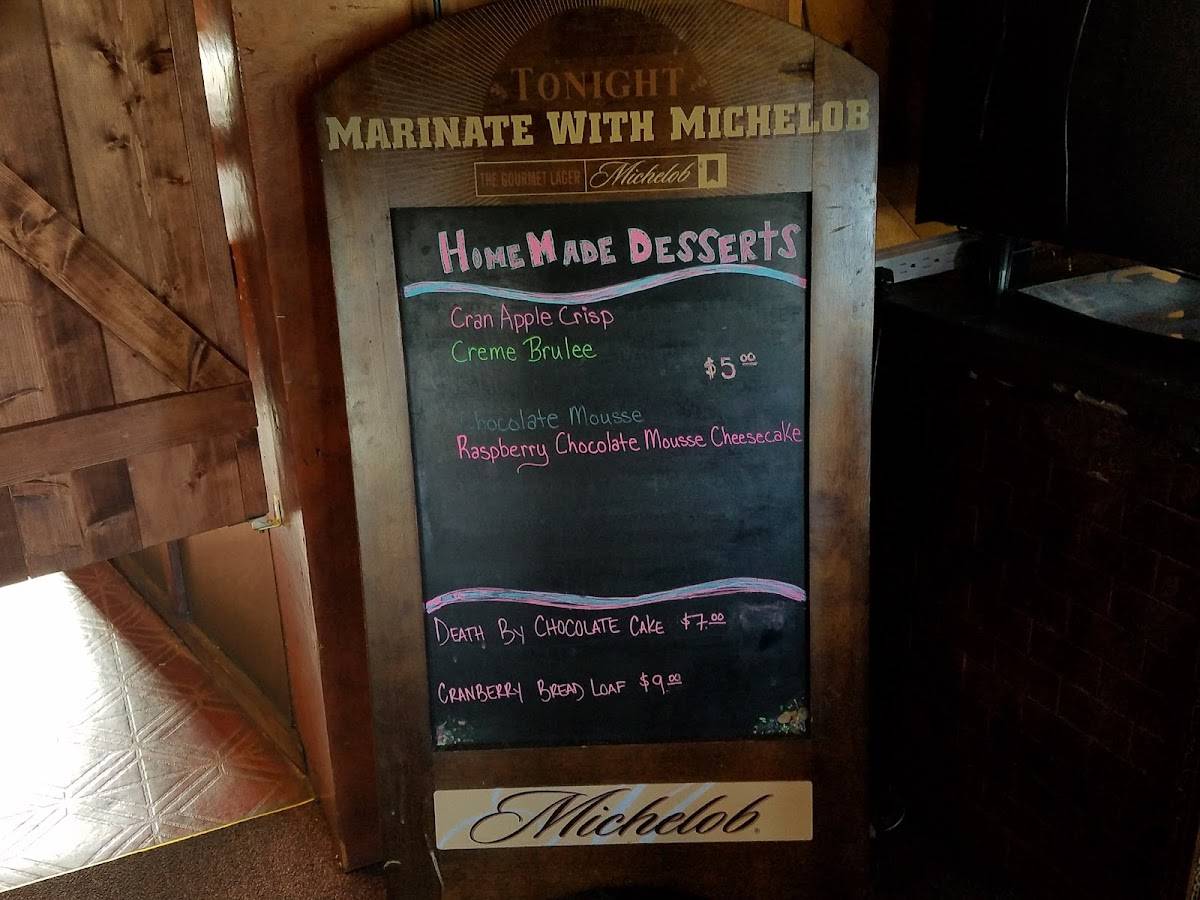 TONIGHT
MARINATE WITH MICHELOB
THE GOURMET LAGER Michelob
HOMEMADE DESSERTS
Cran Apple Crisp
Creme Brulee
$5.00
Chocolate Mousse
Raspberry Chocolate Mousse Cheesecake
DEATH By CHOCOLATE CAKE $7.00
CRANBERRY BREAD LOAF $9.00
Michelob